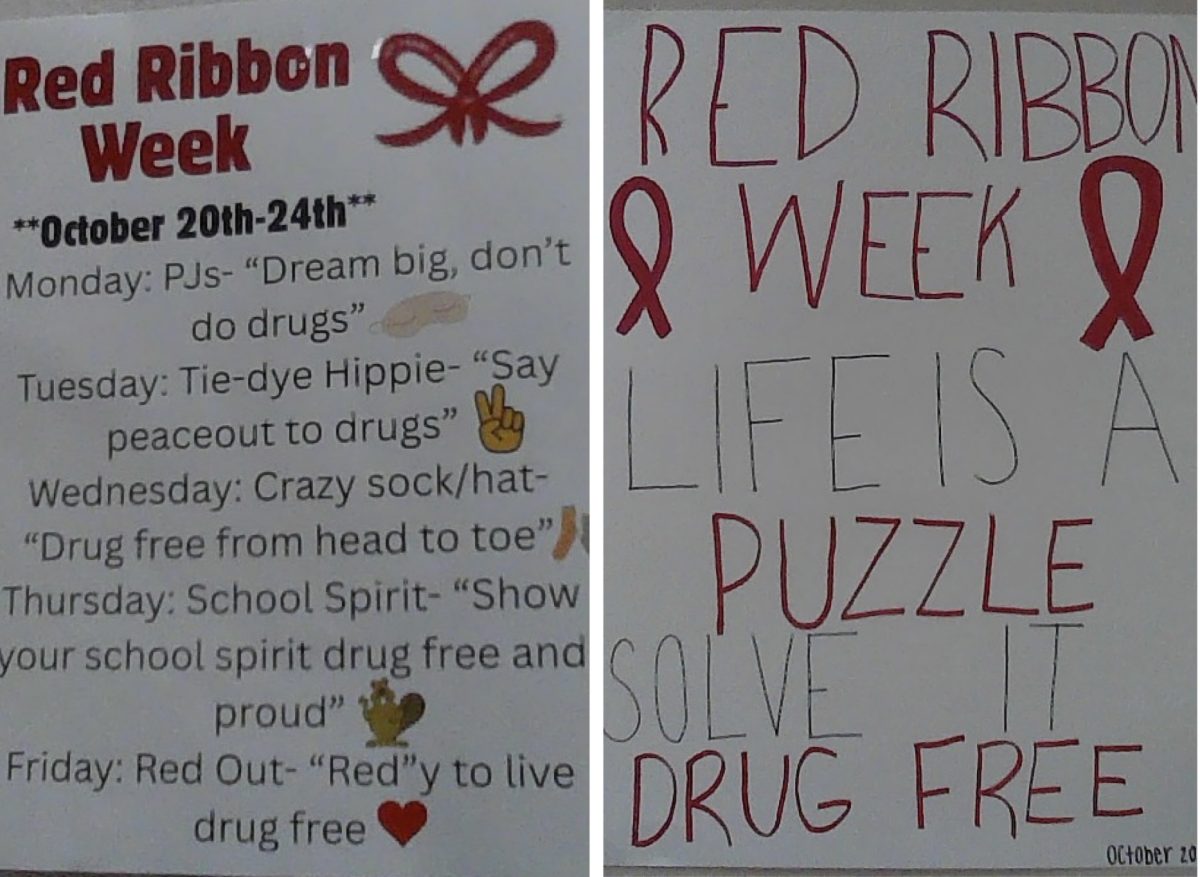 Red Ribbon
Week
**October 20th-24th**
Monday: PJs- “Dream big, don’t
do drugs”
Tuesday: Tie-dye Hippie- “Say
peaceout to drugs”
Wednesday: Crazy sock/hat-
“Drug free from head to toe”
Thursday: School Spirit- “Show
your school spirit drug free and
proud”
Friday: Red Out- “Red”y to live
drug free
RED RIBBON
WEEK
LIFE IS A
PUZZLE
SOLVE IT
DRUG FREE
October 20